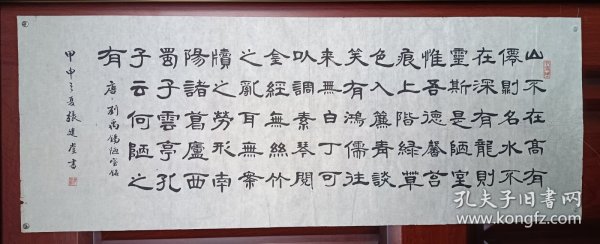 山不在高有
僊則名水不
在深有龍則
靈斯是陋室
惟吾德馨苔
痕上階緑草
色入簾青談
笑有鴻儒往
来無白丁可
以調素琴閲
金經無絲竹
之亂耳無案
牘之勞形南
陽諸葛廬西
蜀子雲亭孔
子云何陋之
有
唐劉禹錫陋室銘
甲申之夏張建書
孔夫子旧书网
www.kongfz.com